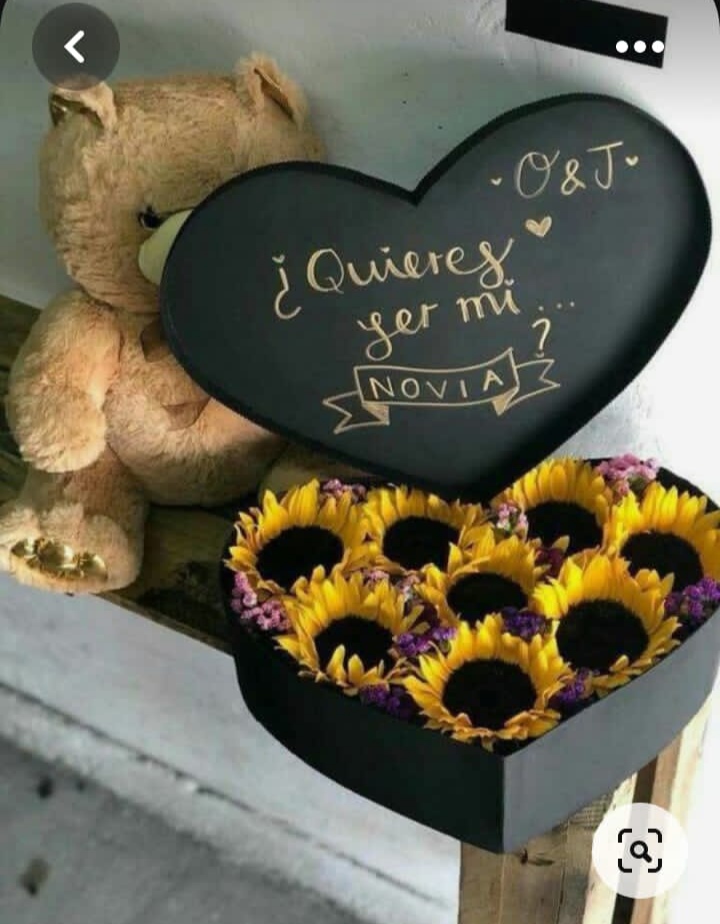 O & J
¿Quieres
ser mi...
?
NOVIA